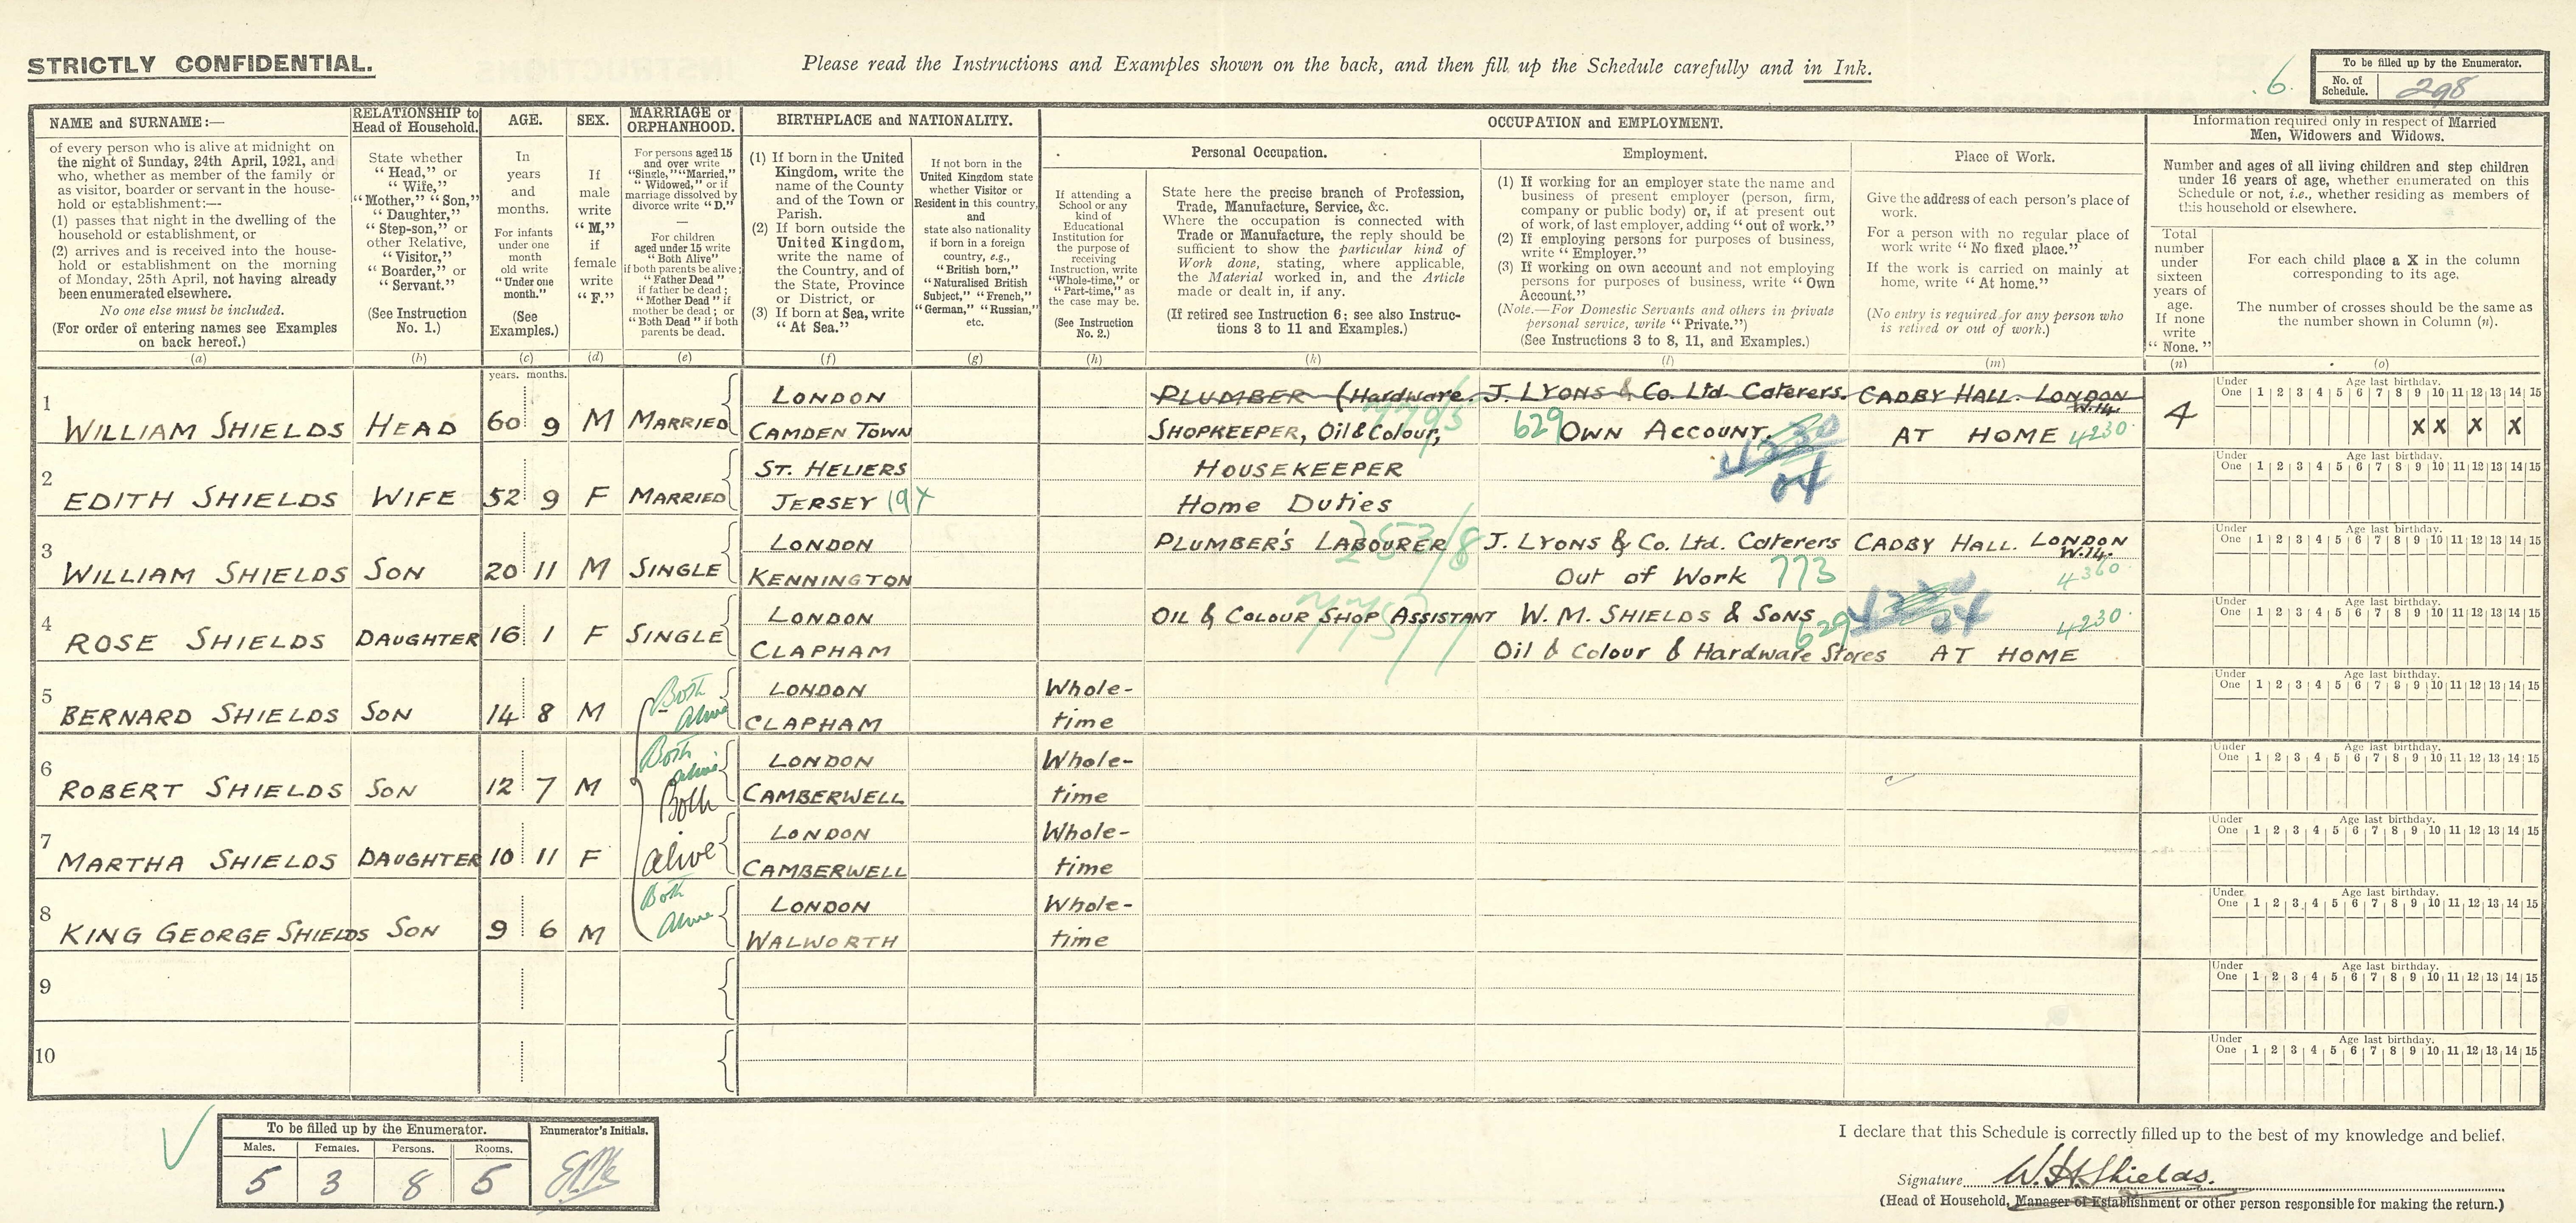 STRICTLY CONFIDENTIAL.
Please read the Instructions and Examples shown on the back, and then fill up the Schedule carefully and in Ink.
6.
To be filled up by the Enumerator.
No. of Schedule. 298
NAME and SURNAME:—
of every person who is alive at midnight on
the night of Sunday, 24th April, 1921, and
who, whether as member of the family or
as visitor, boarder or servant in the house-
hold or establishment:—
(1) passes that night in the dwelling of the
household or establishment, or
(2) arrives and is received into the house-
hold or establishment on the morning
of Monday, 25th April, not having already
been enumerated elsewhere.
No one else must be included.
(For order of entering names see Examples
on back hereof.)
(a)
RELATIONSHIP to
Head of Household.
State whether
"Head," or
"Wife,"
"Mother," "Son,"
"Daughter,"
"Step-son," or
other Relative,
"Visitor,"
"Boarder," or
"Servant."
(See Instruction
No. 1.)
(b)
AGE.
In
years
and
months.
For infants
under one
month
old write
"Under one
month."
(See
Examples.)
(c)
SEX.
If
male
write
"M,"
if
female
write
"F."
(d)
MARRIAGE or
ORPHANHOOD.
For persons aged 15
and over write
"Single," "Married,"
"Widowed," or if
marriage dissolved by
divorce write "D."
—
For children
aged under 15 write
"Both Alive"
if both parents be alive;
"Father Dead"
if father be dead;
"Mother Dead" if
mother be dead; or
"Both Dead" if both
parents be dead.
(e)
BIRTHPLACE and NATIONALITY.
(1) If born in the United
Kingdom, write the
name of the County
and of the Town or
Parish.
(2) If born outside the
United Kingdom,
write the name of
the Country, and of
the State, Province
or District, or
(3) If born at Sea, write
"At Sea."
(f)
If not born in the
United Kingdom state
whether Visitor or
Resident in this country,
and
state also nationality
if born in a foreign
country, e.g.,
"British born,"
"Naturalised British
Subject," "French,"
"German," "Russian,"
etc.
(g)
OCCUPATION and EMPLOYMENT.
Personal Occupation.
If attending a
School or any
kind of
Educational
Institution for
the purpose of
receiving
Instruction, write
"Whole-time," or
"Part-time," as
the case may be.
(See Instruction
No. 2.)
(h)
State here the precise branch of Profession,
Trade, Manufacture, Service, &c.
Where the occupation is connected with
Trade or Manufacture, the reply should be
sufficient to show the particular kind of
Work done, stating, where applicable,
the Material worked in, and the Article
made or dealt in, if any.
(If retired see Instruction 6; see also Instruc-
tions 3 to 11 and Examples.)
(k)
Employment.
(1) If working for an employer state the name and
business of present employer (person, firm,
company or public body) or, if at present out
of work, of last employer, adding "out of work."
(2) If employing persons for purposes of business,
write "Employer."
(3) If working on own account and not employing
persons for purposes of business, write "Own
Account."
(Note.—For Domestic Servants and others in private
personal service, write "Private.")
(See Instructions 3 to 8, 11, and Examples.)
(l)
Place of Work.
Give the address of each person's place of
work.
For a person with no regular place of
work write "No fixed place."
If the work is carried on mainly at
home, write "At home."
(No entry is required for any person who
is retired or out of work.)
(m)
Information required only in respect of Married
Men, Widowers and Widows.
Number and ages of all living children and step children
under 16 years of age, whether enumerated on this
Schedule or not, i.e., whether residing as members of
this household or elsewhere.
Total
number
under
sixteen
years of
age.
If none
write
"None."
(n)
For each child place a X in the column
corresponding to its age.
The number of crosses should be the same as
the number shown in Column (n).
(o)
years. months.
1
LONDON PLUMBER (Hardware. J. LYONS & Co. Ltd. Caterers. CADBY HALL. LONDON W.14.
WILLIAM SHIELDS HEAD 60 9 M MARRIED CAMDEN TOWN SHOPKEEPER, Oil & Colour, 629 OWN ACCOUNT. AT HOME 4230 4
Under One 1 2 3 4 5 6 7 8 9 10 11 12 13 14 15 Age last birthday.
X X X X
2
ST. HELIERS HOUSEKEEPER
EDITH SHIELDS WIFE 52 9 F MARRIED JERSEY 194 Home Duties 04
Under One 1 2 3 4 5 6 7 8 9 10 11 12 13 14 15 Age last birthday.
3
LONDON PLUMBER'S LABOURER J. LYONS & Co. Ltd. Caterers CADBY HALL. LONDON W.14.
WILLIAM SHIELDS SON 20 11 M SINGLE KENNINGTON Out of Work 773 4360
Under One 1 2 3 4 5 6 7 8 9 10 11 12 13 14 15 Age last birthday.
4
LONDON OIL & COLOUR SHOP ASSISTANT W. M. SHIELDS & SONS 629 04 4230
ROSE SHIELDS DAUGHTER 16 1 F SINGLE CLAPHAM Oil & Colour & Hardware Stores AT HOME
Under One 1 2 3 4 5 6 7 8 9 10 11 12 13 14 15 Age last birthday.
5
Both LONDON Whole-
BERNARD SHIELDS SON 14 8 M Alive CLAPHAM time
Under One 1 2 3 4 5 6 7 8 9 10 11 12 13 14 15 Age last birthday.
6
Both alive LONDON Whole-
ROBERT SHIELDS SON 12 7 M Both CAMBERWELL time
Under One 1 2 3 4 5 6 7 8 9 10 11 12 13 14 15 Age last birthday.
7
LONDON Whole-
MARTHA SHIELDS DAUGHTER 10 11 F alive CAMBERWELL time
Under One 1 2 3 4 5 6 7 8 9 10 11 12 13 14 15 Age last birthday.
8
Both LONDON Whole-
KING GEORGE SHIELDS SON 9 6 M Alive WALWORTH time
Under One 1 2 3 4 5 6 7 8 9 10 11 12 13 14 15 Age last birthday.
9
Under One 1 2 3 4 5 6 7 8 9 10 11 12 13 14 15 Age last birthday.
10
Under One 1 2 3 4 5 6 7 8 9 10 11 12 13 14 15 Age last birthday.
To be filled up by the Enumerator. Enumerator's Initials.
Males. Females. Persons. Rooms.
5 3 8 5
I declare that this Schedule is correctly filled up to the best of my knowledge and belief.
Signature W. H. Shields.
(Head of Household, Manager of Establishment or other person responsible for making the return.)